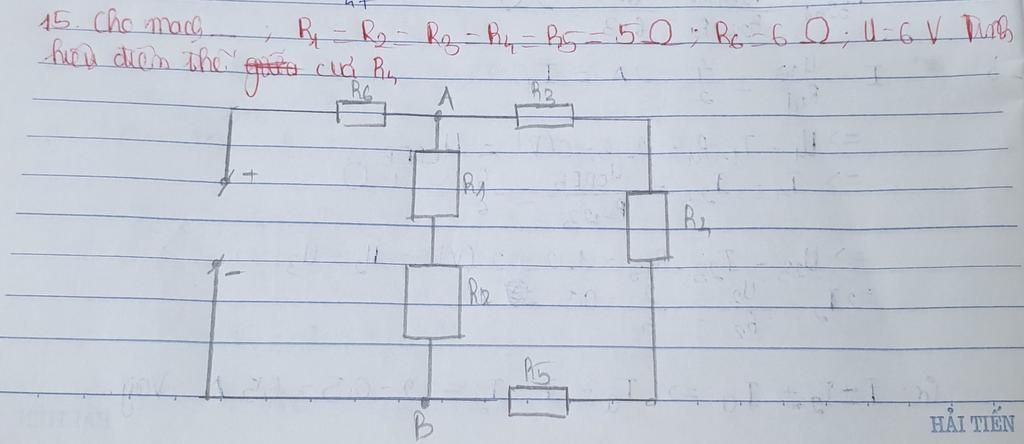 15. Cho mạch ; R1 = R2 = R3 = R4 = R5 = 5 Ω ; R6 = 6 Ω ; U = 6 V Tính
hiệu điện thế của R4
R6
A
R3
+
R1
R4
-
R2
R5
B
HẢI TIẾN